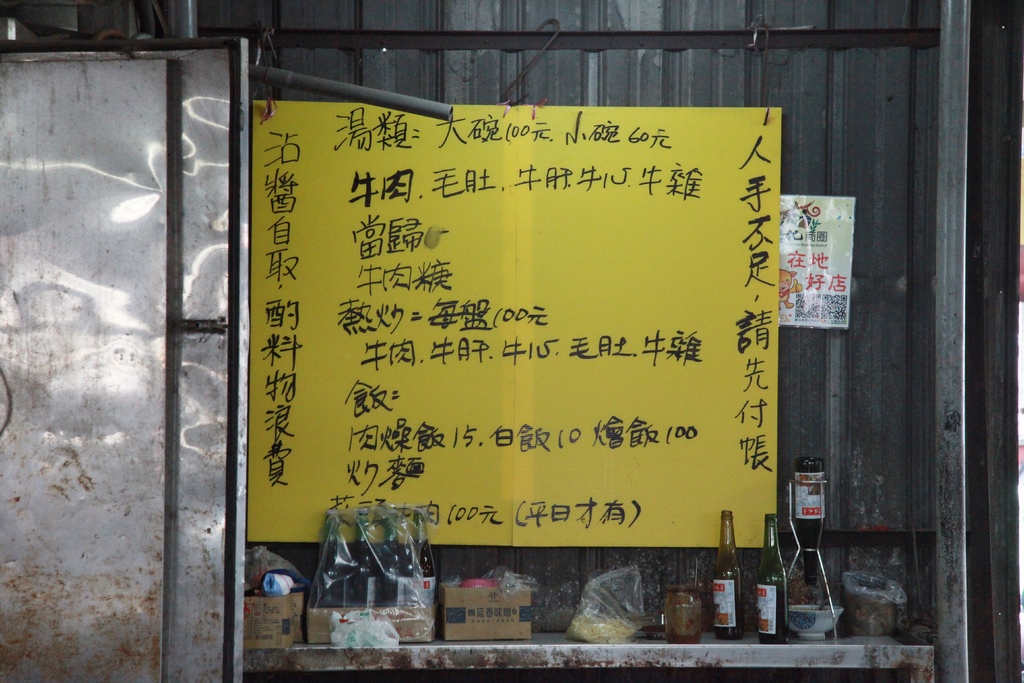 人手不足,請先付帳
湯類:大碗100元.小碗60元
牛肉.毛肚.牛肝.牛心.牛雜
當歸
牛肉糖
熱炒=每盤100元
牛肉.牛肝.牛心.毛肚.牛雜
飯:
肉燥飯15.白飯10燴飯100
炒麵
肉100元(平日才有)
沾醬自取,酌料物浪費
商圈
在地
好店